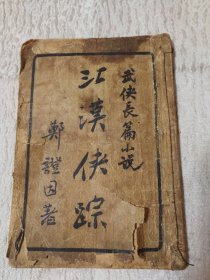 武侠長篇小説
江漢侠踪
鄭證因著